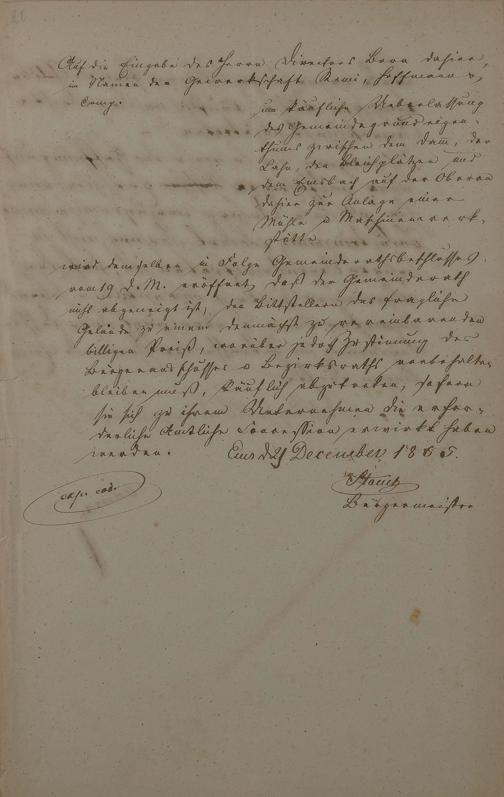 Auf die Eingabe des Herrn Directors Born dahier,
im Namen der Gewerkschaft Remi, Hoffmann &
Comp.
um käufliche Ueberlassung
des Gemeindegrundeigen-
thums zwischen dem Damm, der
Lahn, den Bleichplätzen und
dem Emsbach auf der Oberau
dahier zur Anlage einer
Mühle u Maschinenwerk-
stätte
wird demselben in Folge Gemeinderathsbeschlusses
vom 19 d. M. eröffnet, daß der Gemeinderath
nicht abgeneigt ist, den Bittstellern das fragliche
Gelände zu einem demnächst zu vereinbarenden
billigen Preiß, worüber jedoch Zustimmung des
Bürgerausschusses u Bezirksraths vorbehalten
bleiben muß, käuflich abzutreten, sofern
sie sich zu ihrem Unternehmen die erfor-
derliche Amtliche Concession erwirkt haben
werden.
Ems d 21 December 1855.
Bürgermeister
exp. eod.